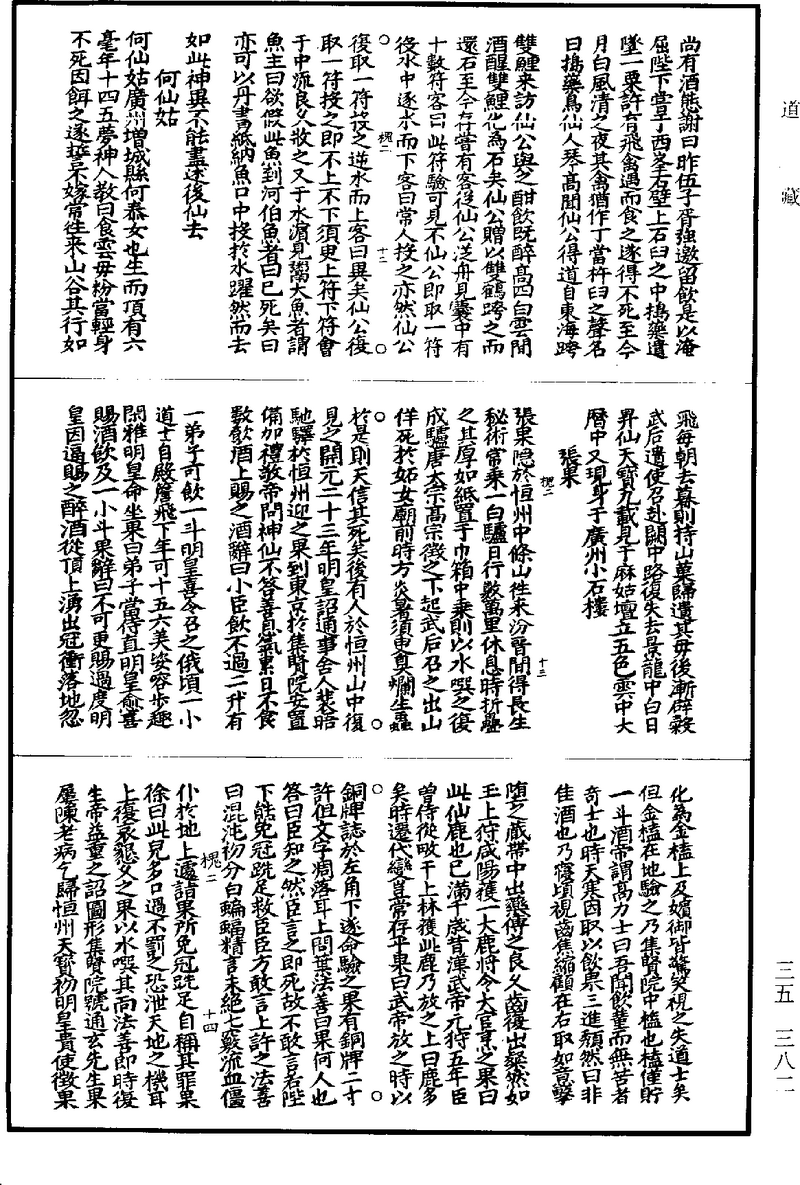 道藏
三五 三八二
尚有酒態謝曰昨伍子胥強邀留飲是以淹
屈陛下嘗于西峯石壁上石臼之中搗藥遺
墜一粟許有飛禽遇而食之遂得不死至今
月白風清之夜其禽猶作丁當杵臼之聲名
曰搗藥鳥仙人琴高聞仙公得道自東海跨
雙鯉来訪仙公與之酣飲既醉高卧白雲間
酒醒雙鯉化為石矣仙公贈以雙鶴跨之而
還石至今存嘗有客從仙公泛舟見囊中有
十數符客曰此符驗可見不仙公即取一符
投水中逐水而下客曰常人投之亦然仙公
槐二
十二
復取一符投之逆水而上客曰異矣仙公復
取一符投之即不上不下須臾上符下符會
于中流良久收之又于水濵見鬻大魚者謂
魚主曰欲假此魚到河伯魚者曰已死矣曰
亦可以丹書紙納魚口中投於水躍然而去
如此神異不能盡述後仙去
何仙姑
何仙姑廣州增城縣何泰女也生而頂有六
毫年十四五夢神人教曰食雲毋粉當輕身
不死因餌之遂誓不嫁常徃来山谷其行如
飛每朝去暮則持山菓歸遺其母後漸辟穀
武后遣使召赴闕中路復失去景龍中白日
昇仙天寶九載見于麻姑壇立五色雲中大
曆中又現身于廣州小石樓
張果
張果隐於恒州中條山徃来汾晉間得長生
槐二
十三
秘術常乗一白驢日行數萬里休息時折疊
之其厚如紙置于巾箱中乗則以水噀之復
成驢唐太宗高宗徵之下起武后召之出山
佯死於妬女廟前時方炎暑須臾臭爛生蟲
於是則天信其死矣後有人於恒州山中復
見之開元二十三年明皇詔通事舍人裴晤
馳驛於恒州迎之果到東京於集賢院安置
備加禮敬帝問神仙不答善息氣累日不食
數飲酒上賜之酒辭曰小臣飲不過二升有
一弟子可飲一斗明皇喜令召之俄頃一小
道士自殿簷飛下年可十五六美姿容步趣
閑雅明皇命坐果曰弟子當侍直明皇愈喜
賜酒飲及一小斗果辭曰不可更賜過度明
皇因逼賜之醉酒從頂上湧出冠衝落地忽
化為金榼上及嬪御皆驚笑視之失道士矣
但金榼在地驗之乃集賢院中榼也榼僅貯
一斗酒帝謂高力士曰吾聞飲菫而無苦者
奇士也時天寒因取以飲果三進頹然曰非
佳酒也乃寢頃視齒焦縮顧左右取如意擊
堕之藏帶中出藥傅之良久齒復出粲然如
玉上狩咸陽獲一大鹿將令大官烹之果曰
此仙鹿也已滿千歲昔漢武帝元狩五年臣
曽侍從畋于上林獲此鹿乃放之上曰鹿多
矣時遷代變豈常存乎果曰武帝放之時以
銅牌誌於左角下遂命驗之果有銅牌二寸
許但文字凋落耳上問葉法善曰果何人也
答曰臣知之然臣言之即死故不敢言若陛
下能免冠跣足救臣臣方敢言上許之法善
曰混沌初分白蝙蝠精言未絕七竅流血僵
槐二
十四
仆於地上遽詣果所免冠跣足自稱其罪果
徐曰此兒多口過不罰之恐泄天地之機耳
上復哀懇久之果以水噀其面法善即時復
生帝益重之詔圖形集賢院號通玄先生果
屢陳老病乞歸恒州天寶初明皇貴使徵果